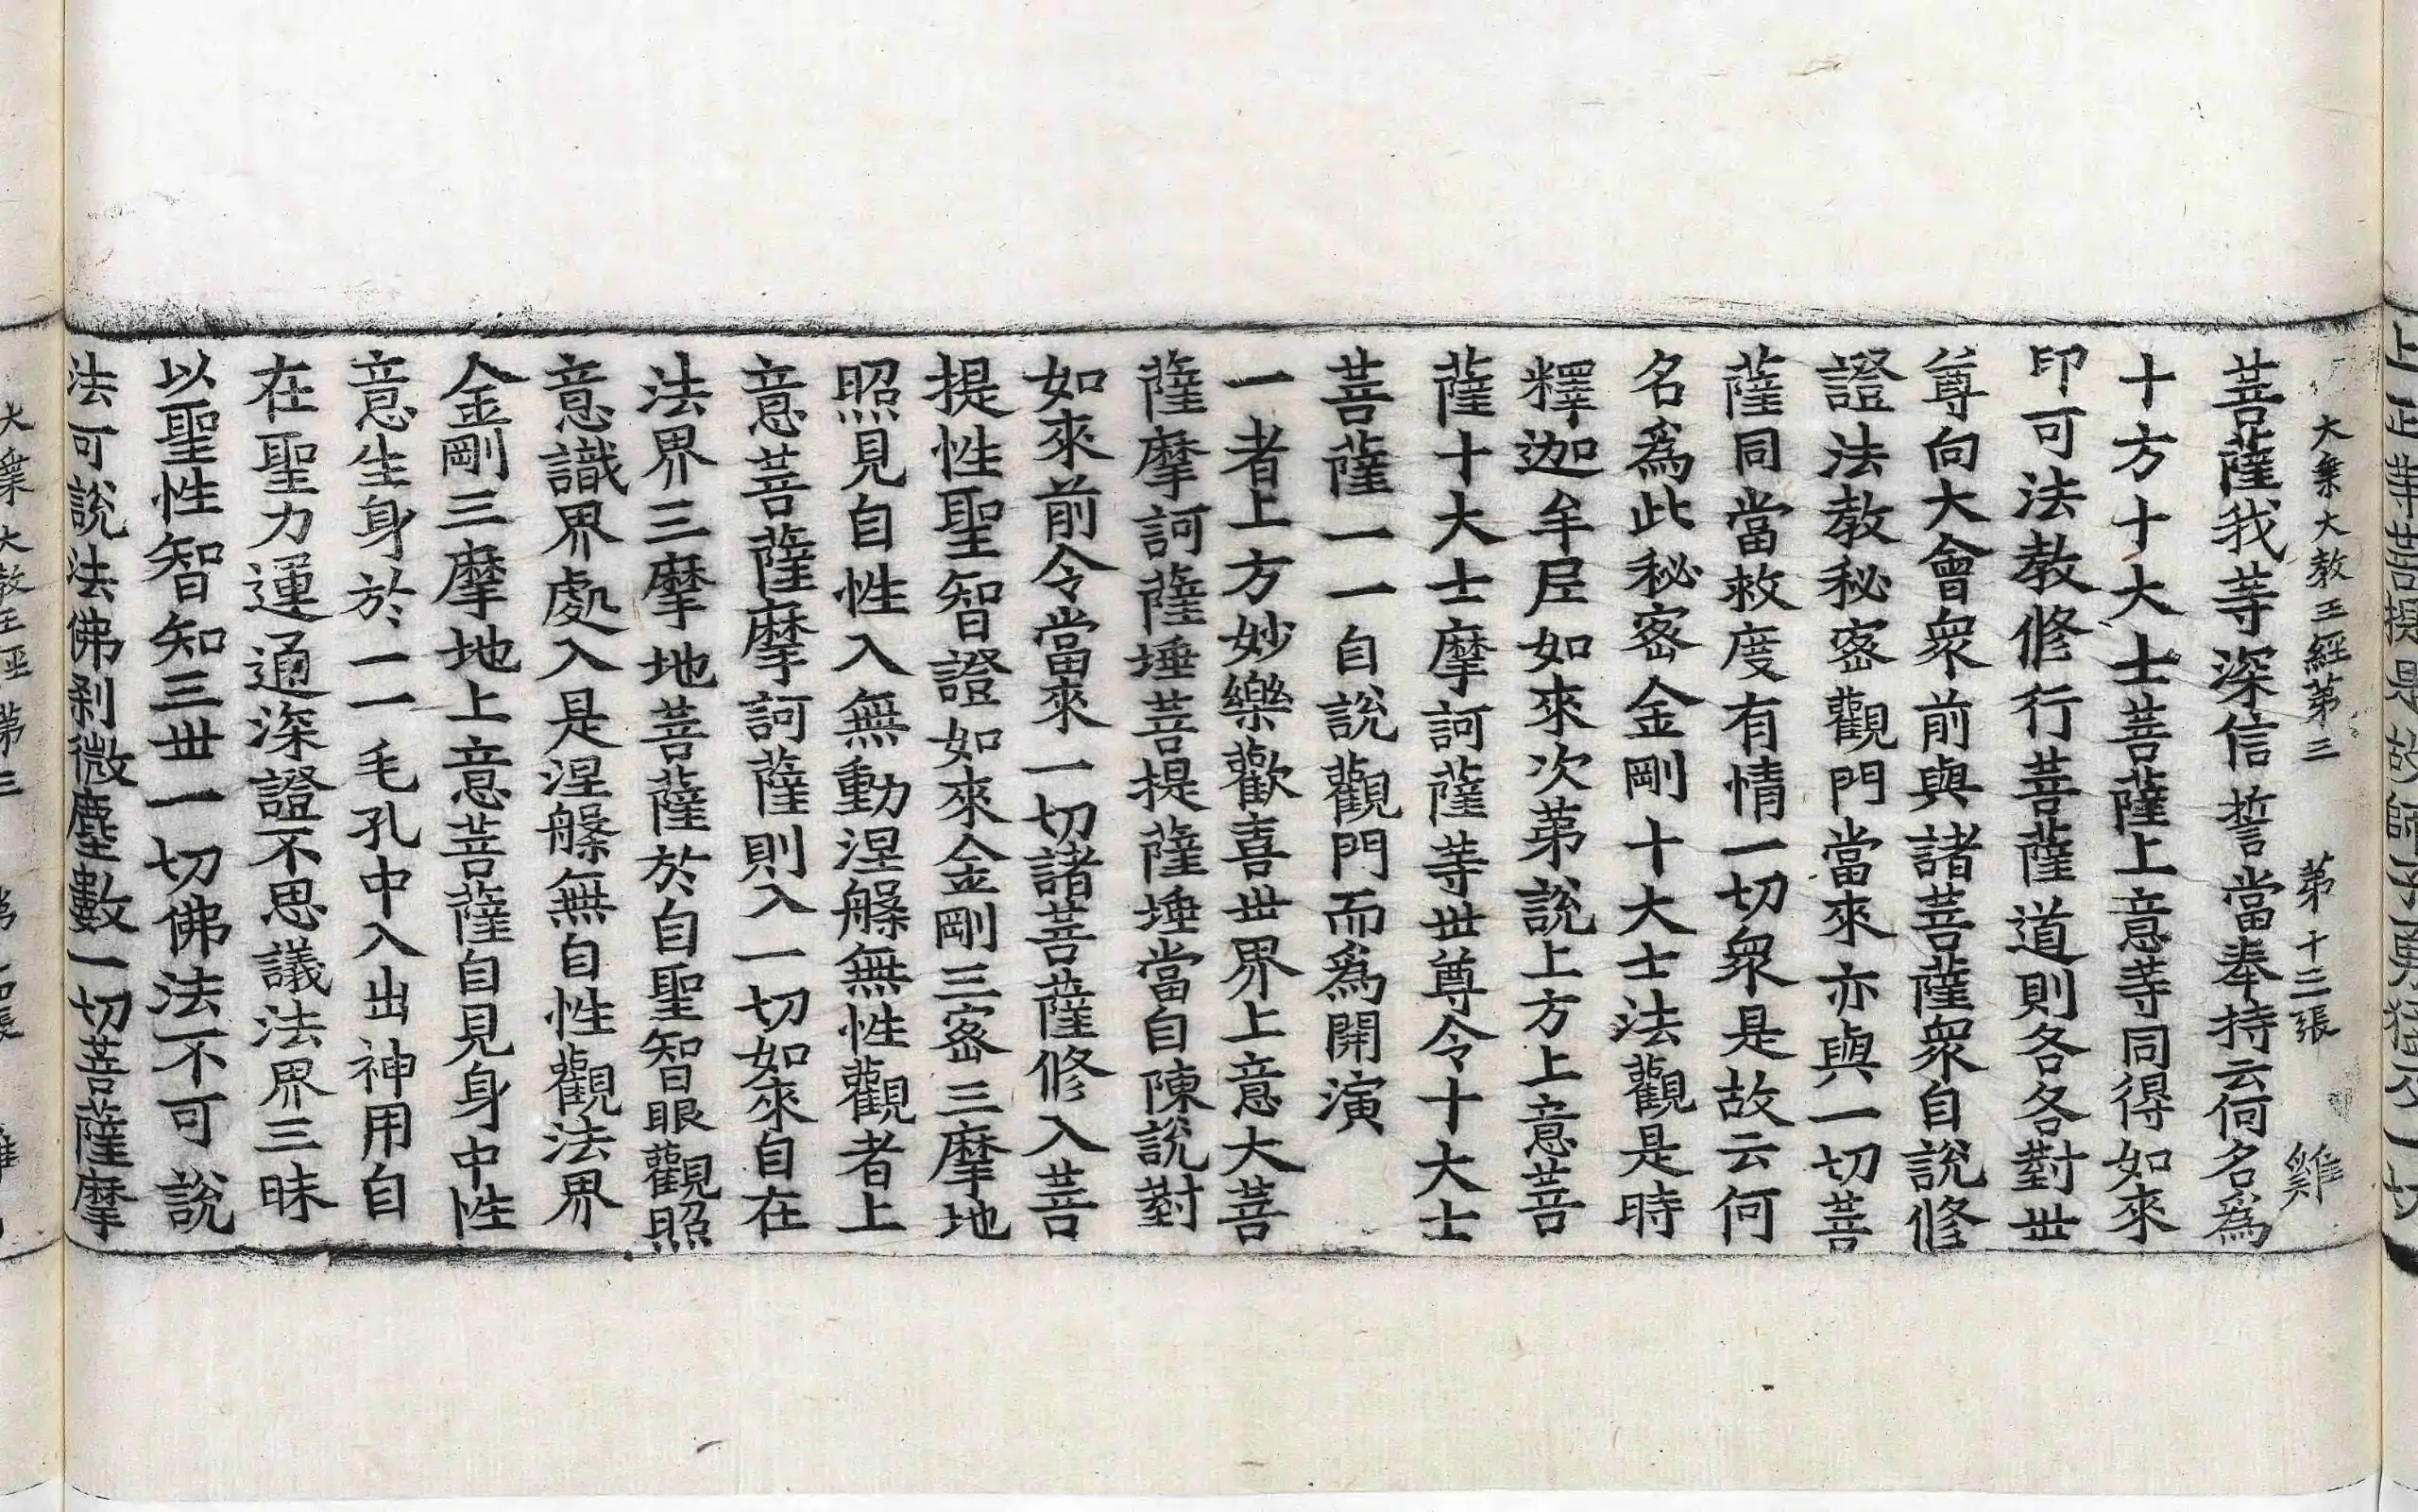 大乗大教王經第三 第十三張 雞
菩薩我等深信誓當奉持云何名爲
十方十大士菩薩上意等同得如來
印可法教修行菩薩道則各各對世
尊向大會衆前與諸菩薩衆自說修
證法教秘密觀門當來亦與一切菩
薩同當救度有情一切衆是故云何
名爲此秘密金剛十大士法觀是時
釋迦牟尼如來次第說上方上意菩
薩十大士摩訶薩等世尊令十大士
菩薩一一自說觀門而爲開演
一者上方妙樂歡喜世界上意大菩
薩摩訶薩埵菩提薩埵當自陳說對
如來前令當來一切諸菩薩修入菩
提性聖智證如來金剛三密三摩地
照見自性入無動涅槃無性觀者上
意菩薩摩訶薩則入一切如來自在
法界三摩地菩薩於自聖智眼觀照
意識界處入是涅槃無自性觀法界
金剛三摩地上意菩薩自見身中性
意生身於一一毛孔中入出神用自
在聖力運通深證不思議法界三昧
以聖性智知三世一切佛法不可說
法可說法佛剎微塵數一切菩薩摩